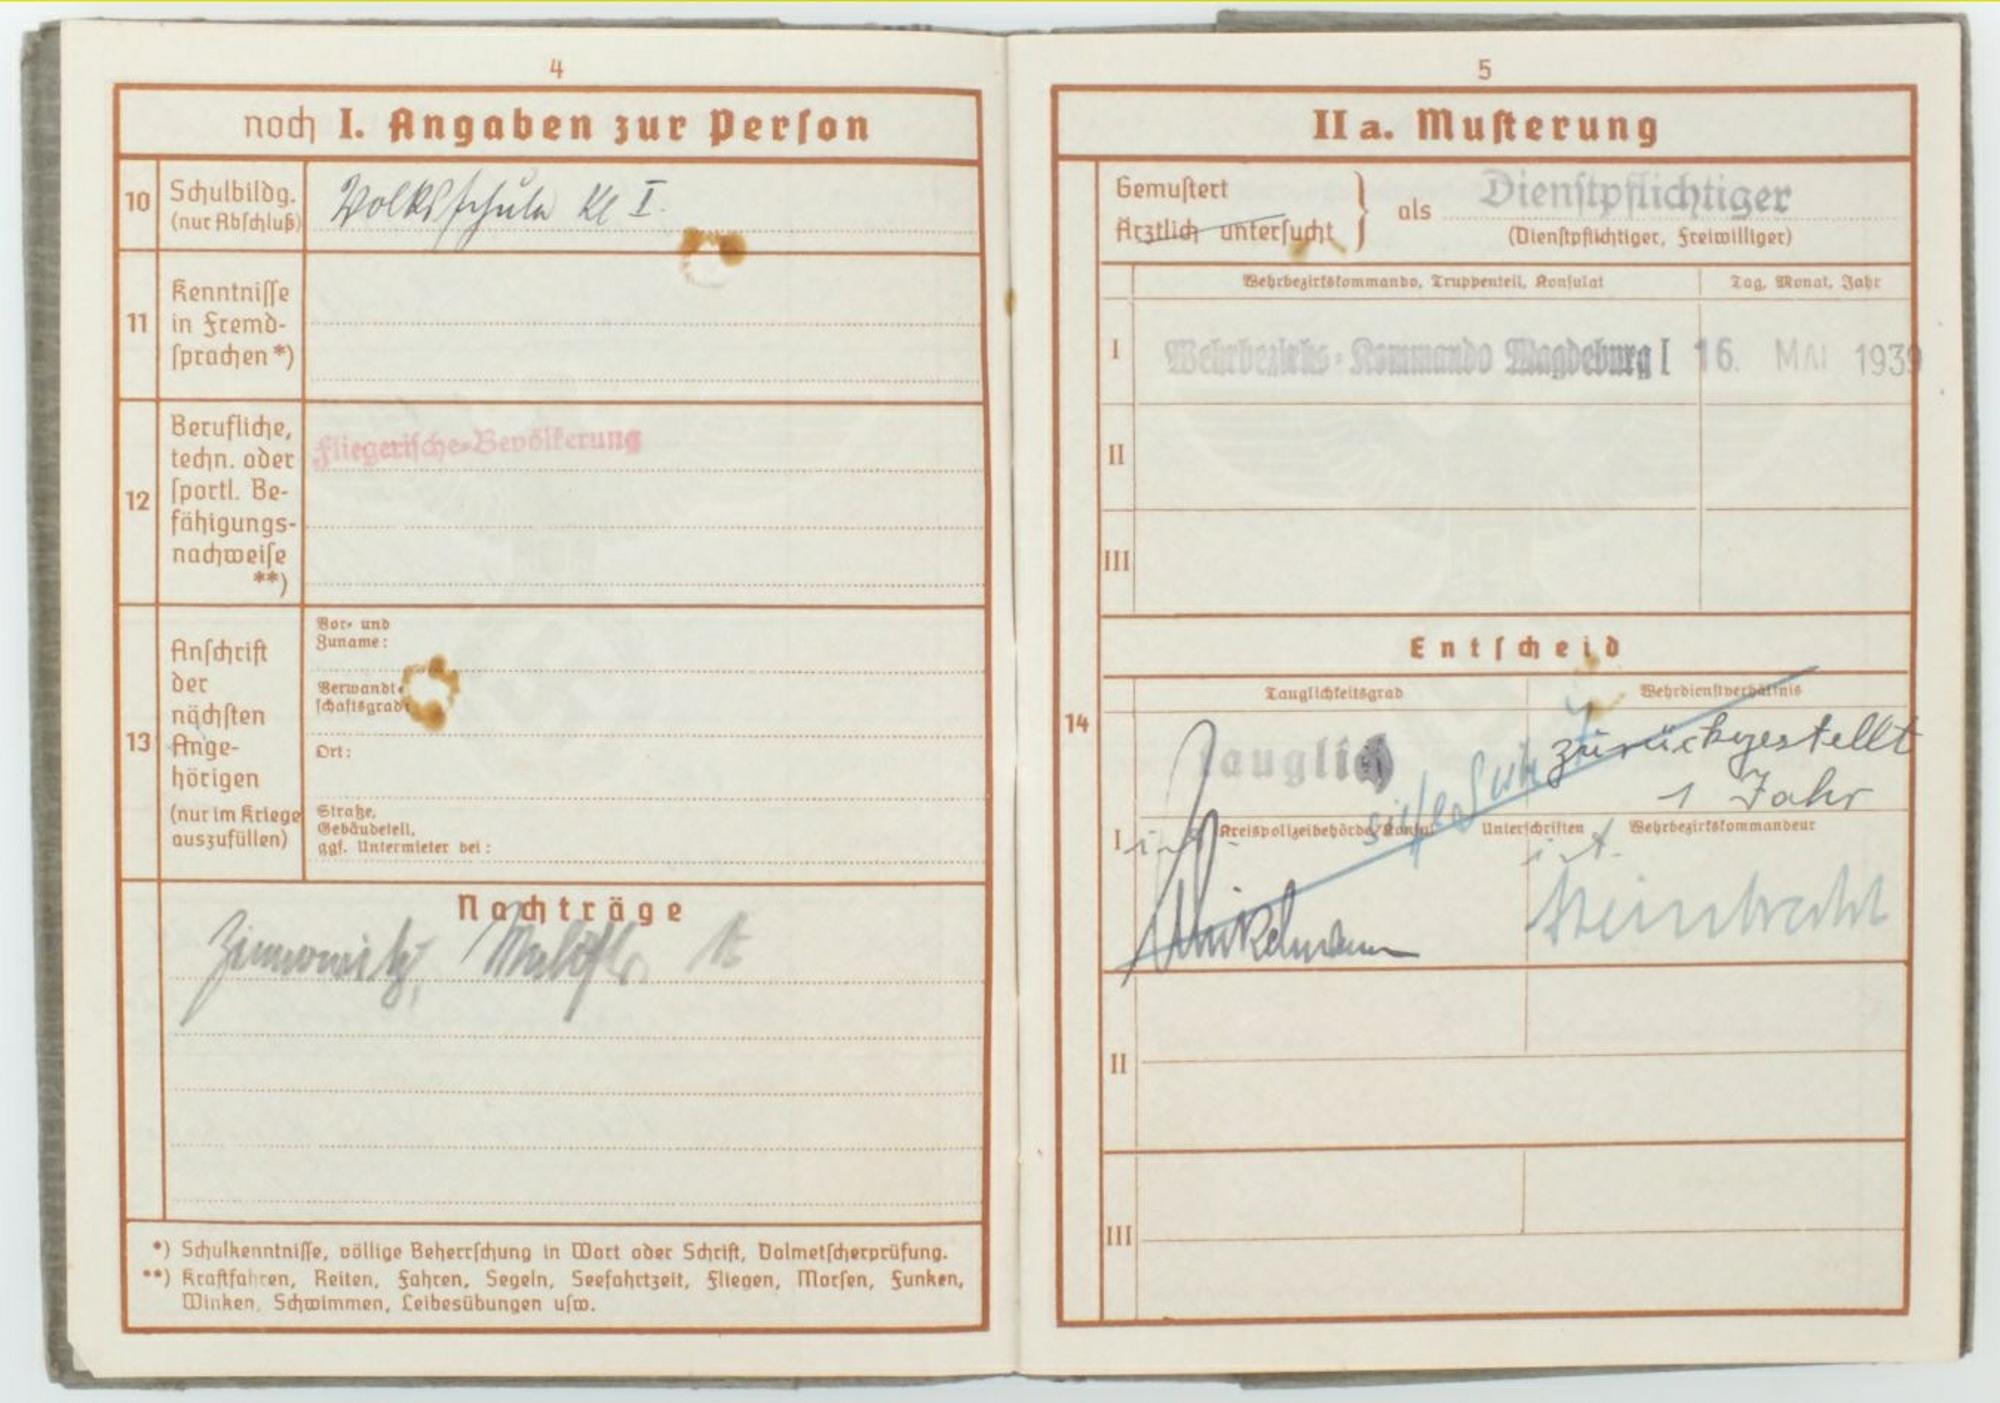 4
noch I. Angaben zur Person
10
Schulbildg.
(nur Abschluß)
Volksschule Kl I.
11
Kenntnisse
in Fremd-
sprachen *)
12
Berufliche,
techn. oder
sportl. Be-
fähigungs-
nachweise
**)
Fliegerische-Bevölkerung
13
Anschrift
der
nächsten
Ange-
hörigen
(nur im Kriege
auszufüllen)
Vor- und
Zuname:
Verwandt-
schaftsgrad:
Ort:
Straße,
Gebäudeteil,
ggf. Untermieter bei:
Nachträge
*) Schulkenntnisse, völlige Beherrschung in Wort oder Schrift, Dolmetscherprüfung.
**) Kraftfahren, Reiten, Fahren, Segeln, Seefahrtzeit, Fliegen, Morsen, Funken,
Winken, Schwimmen, Leibesübungen usw.
5
II a. Musterung
Gemustert
Ärztlich untersucht } als Dienstpflichtiger
(Dienstpflichtiger, Freiwilliger)
Wehrbezirkskommando, Truppenteil, Konsulat
Tag, Monat, Jahr
I
Wehrbezirks-Kommando Magdeburg I 16. MAI 1939
II
III
Entscheid
14
Tauglichkeitsgrad
Wehrdienstverhältnis
Tauglich
zurückgestellt
1 Jahr
siehe Seite 7
I
Kreispolizeibehörde/Konsul
Unterschriften
Wehrbezirkskommandeur
II
III